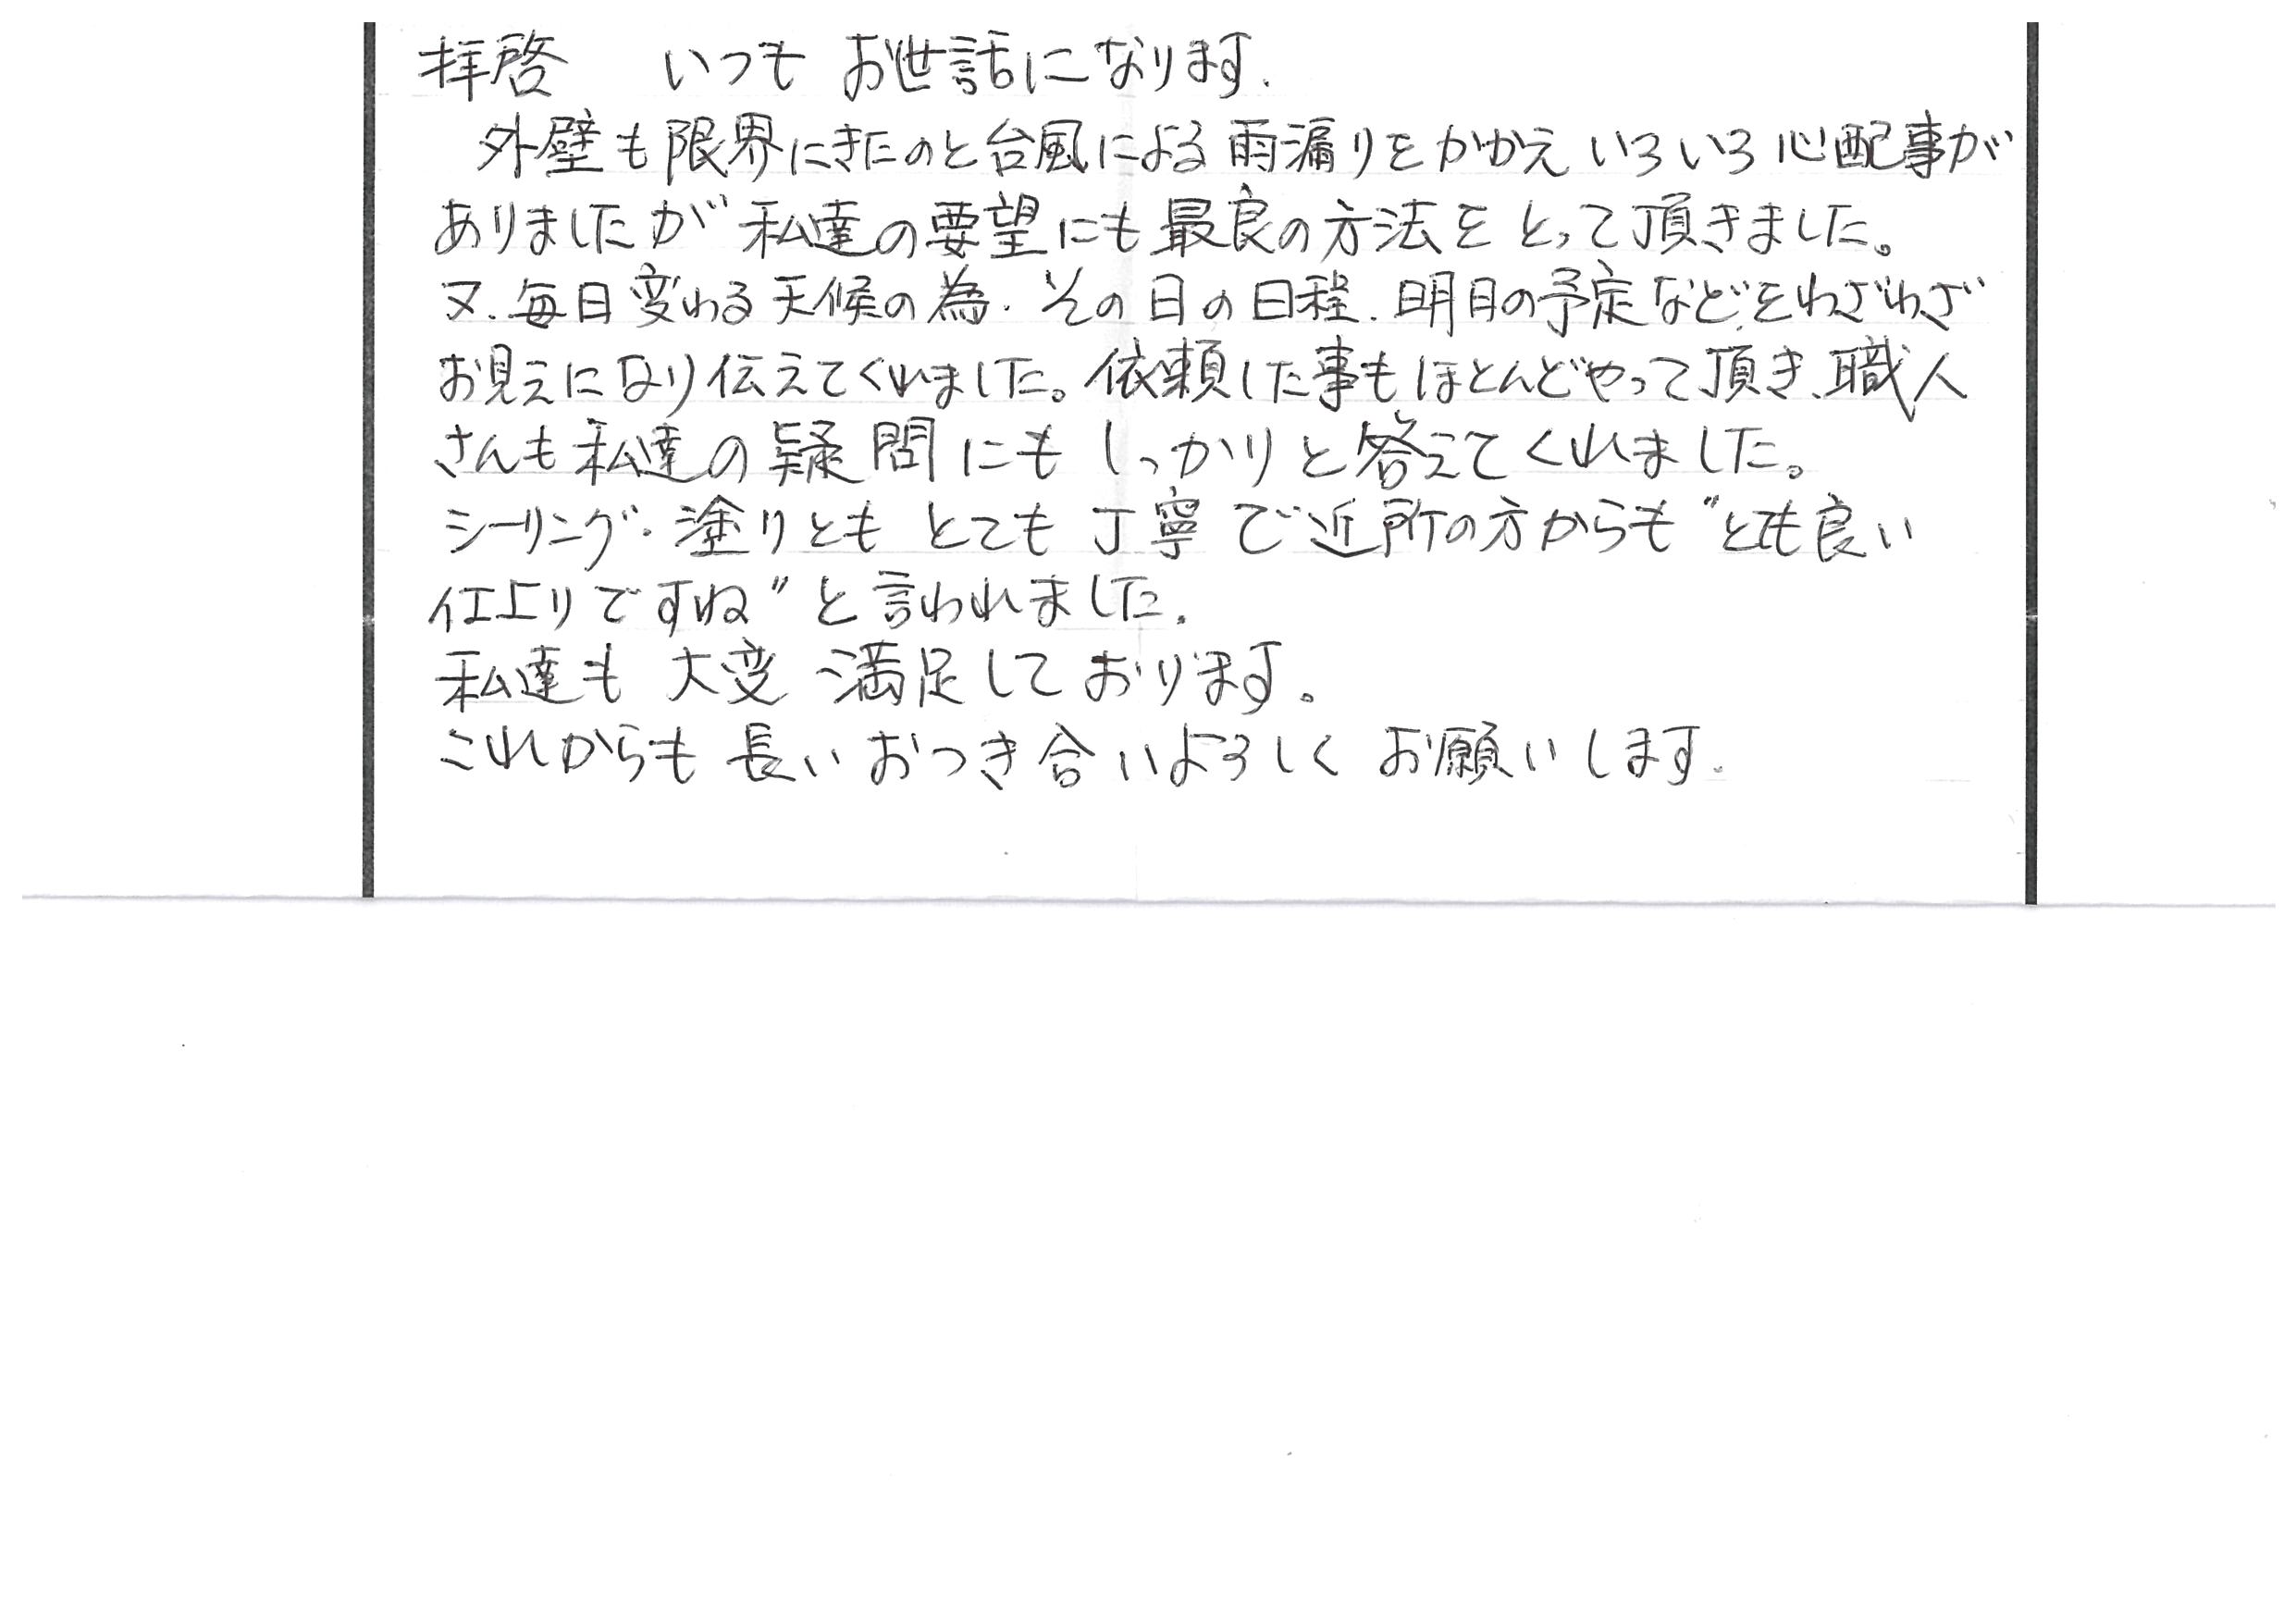 拝啓　いつも お世話になります.
外壁も限界にきたのと台風による雨漏りをかかえ いろいろ心配事が
ありましたが 私達の要望にも最良の方法をとって頂きました。
又、毎日変わる天候の為、その日の日程、明日の予定などをわざわざ
お見えになり伝えてくれました。依頼した事もほとんどやって頂き、職人
さんも私達の疑問にもしっかりと答えてくれました。
シーリング・塗りとも とても丁寧で近所の方からも〝とても良い
仕上りですね〟と言われました.
私達も大変満足しております。
これからも長いおつき合いよろしくお願いします.